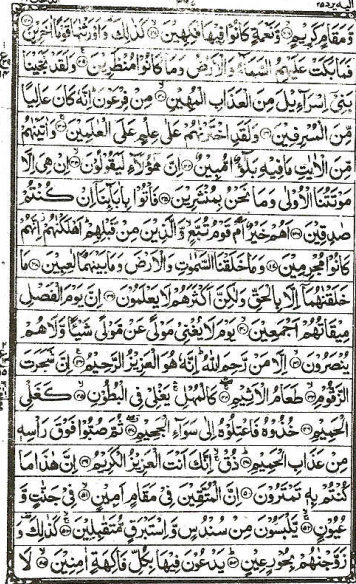 وَّمَقَامٍ كَرِيْمٍ ۙ﴿۲۶﴾ وَّنَعْمَةٍ كَانُوْا فِيْهَا فٰكِهِيْنَ ۙ﴿۲۷﴾ كَذٰلِكَ ۟ وَاَوْرَثْنٰهَا قَوْمًا اٰخَرِيْنَ ﴿۲۸﴾
فَمَا بَكَتْ عَلَيْهِمُ السَّمَآءُ وَالْاَرْضُ وَمَا كَانُوْا مُنْظَرِيْنَ ﴿۲۹﴾ وَلَقَدْ نَجَّيْنَا
بَنِيْٓ اِسْرَآءِيْلَ مِنَ الْعَذَابِ الْمُهِيْنِ ۙ﴿۳۰﴾ مِنْ فِرْعَوْنَ ؕ اِنَّهٗ كَانَ عَالِيًا
مِّنَ الْمُسْرِفِيْنَ ﴿۳۱﴾ وَلَقَدِ اخْتَرْنٰهُمْ عَلٰى عِلْمٍ عَلَى الْعٰلَمِيْنَ ﴿۳۲﴾ وَاٰتَيْنٰهُمْ
مِّنَ الْاٰيٰتِ مَا فِيْهِ بَلٰٓؤٌا مُّبِيْنٌ ﴿۳۳﴾ اِنَّ هٰٓؤُلَآءِ لَيَقُوْلُوْنَ ﴿۳۴﴾ اِنْ هِيَ اِلَّا
مَوْتَتُنَا الْاُوْلٰى وَمَا نَحْنُ بِمُنْشَرِيْنَ ﴿۳۵﴾ فَاْتُوْا بِاٰبَآئِنَآ اِنْ كُنْتُمْ
صٰدِقِيْنَ ﴿۳۶﴾ اَهُمْ خَيْرٌ اَمْ قَوْمُ تُبَّعٍ ۙ وَّالَّذِيْنَ مِنْ قَبْلِهِمْ ؕ اَهْلَكْنٰهُمْ ؗ اِنَّهُمْ
كَانُوْا مُجْرِمِيْنَ ﴿۳۷﴾ وَمَا خَلَقْنَا السَّمٰوٰتِ وَالْاَرْضَ وَمَا بَيْنَهُمَا لٰعِبِيْنَ ﴿۳۸﴾ مَا
خَلَقْنٰهُمَآ اِلَّا بِالْحَقِّ وَلٰكِنَّ اَكْثَرَهُمْ لَا يَعْلَمُوْنَ ﴿۳۹﴾ اِنَّ يَوْمَ الْفَصْلِ
مِيْقَاتُهُمْ اَجْمَعِيْنَ ۙ﴿۴۰﴾ يَوْمَ لَا يُغْنِيْ مَوْلًى عَنْ مَّوْلًى شَيْـًٔا وَّلَا هُمْ
يُنْصَرُوْنَ ۙ﴿۴۱﴾ اِلَّا مَنْ رَّحِمَ اللّٰهُ ؕ اِنَّهٗ هُوَ الْعَزِيْزُ الرَّحِيْمُ ﴿۴۲﴾ اِنَّ شَجَرَتَ
الزَّقُّوْمِ ۙ﴿۴۳﴾ طَعَامُ الْاَثِيْمِ ﴿۴۴﴾ كَالْمُهْلِ ۛ يَغْلِيْ فِي الْبُطُوْنِ ۙ﴿۴۵﴾ كَغَلْيِ
الْحَمِيْمِ ﴿۴۶﴾ خُذُوْهُ فَاعْتِلُوْهُ اِلٰى سَوَآءِ الْجَحِيْمِ ﴿۴۷﴾ ثُمَّ صُبُّوْا فَوْقَ رَاْسِهٖ
مِنْ عَذَابِ الْحَمِيْمِ ﴿۴۸﴾ ذُقْ ۚۙ اِنَّكَ اَنْتَ الْعَزِيْزُ الْكَرِيْمُ ﴿۴۹﴾ اِنَّ هٰذَا مَا
كُنْتُمْ بِهٖ تَمْتَرُوْنَ ﴿۵۰﴾ اِنَّ الْمُتَّقِيْنَ فِيْ مَقَامٍ اَمِيْنٍ ۙ﴿۵۱﴾ فِيْ جَنّٰتٍ وَّ
عُيُوْنٍ ۚۙ﴿۵۲﴾ يَّلْبَسُوْنَ مِنْ سُنْدُسٍ وَّاِسْتَبْرَقٍ مُّتَقٰبِلِيْنَ ۚۙ﴿۵۳﴾ كَذٰلِكَ ۟ وَ
زَوَّجْنٰهُمْ بِحُوْرٍ عِيْنٍ ؕ﴿۵۴﴾ يَدْعُوْنَ فِيْهَا بِكُلِّ فَاكِهَةٍ اٰمِنِيْنَ ۙ﴿۵۵﴾ لَا